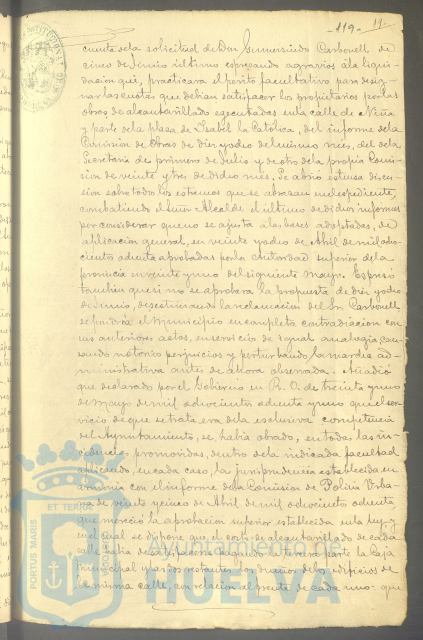 119- 11.
cuente de la solicitud de Don Gumersindo Carbonell de
cinco de Junio último espresando agravios á la liqui-
dacion que, practicara el perito facultativo para desig-
nar las cuotas que debian satisfacer los propietarios por las
obras de alcantarillado ejecutadas en la calle de
y parte de la plaza de Isabel la Católica, del informe de la
Comision de Obras de diez y ocho del mismo mes, del de la
Secretaria de primero de Julio y de otro de la propia Comi-
sion de veinte y tres de dicho mes. Se abrió estensa discu-
sion sobre todos los estremos que se abrazan en el espediente,
combatiendo el Señor Alcalde el último de dichos informes
por considerar que no se ajusta á las bases adoptadas, de
aplicacion general, en veinte y ocho de Abril de mil ocho-
cientos ochenta aprobadas por la Autoridad superior de la
provincia en veinte y uno del siguiente Mayo. Espresó
tambien que si no se aprobara la propuesta de diez y ocho
de Junio, desestimando la reclamacion del Sr. Carbonell
se pondria el Municipio en completa contradiccion con
sus anteriores actos, en servicio de igual analogia cau-
sando notorio perjuicios y perturbando la marcha ad-
ministrativa antes de ahora observada. Añadió
que declarado por el Gobierno en R. O. de treinta y uno
de Mayo de mil ochocientos ochenta y uno que el ser-
vicio de que se trata era de la esclusiva competencia
del Ayuntamiento, se habia obrado, en todas las in-
cidencias promovidas, dentro de la indicada facultad
aplicando, en cada caso, la jurisprudencia establecida en
armonia con el informe de la Comision de Policia Urba-
na de veinte y cinco de Abril de mil ochocientos ochenta,
que mereció la aprobacion superior establecida en la ley, y
en el cual se dispone que el costo de alcantarillado de cada
calle habia de satisfacerse pagando la tercera parte la Caja
municipal y las dos restantes los dueños de los edificios de
la misma calle, con relacion al frente de cada uno: que
PORTUS MARIS
ET TERRÆ
Ayuntamiento de
HUELVA